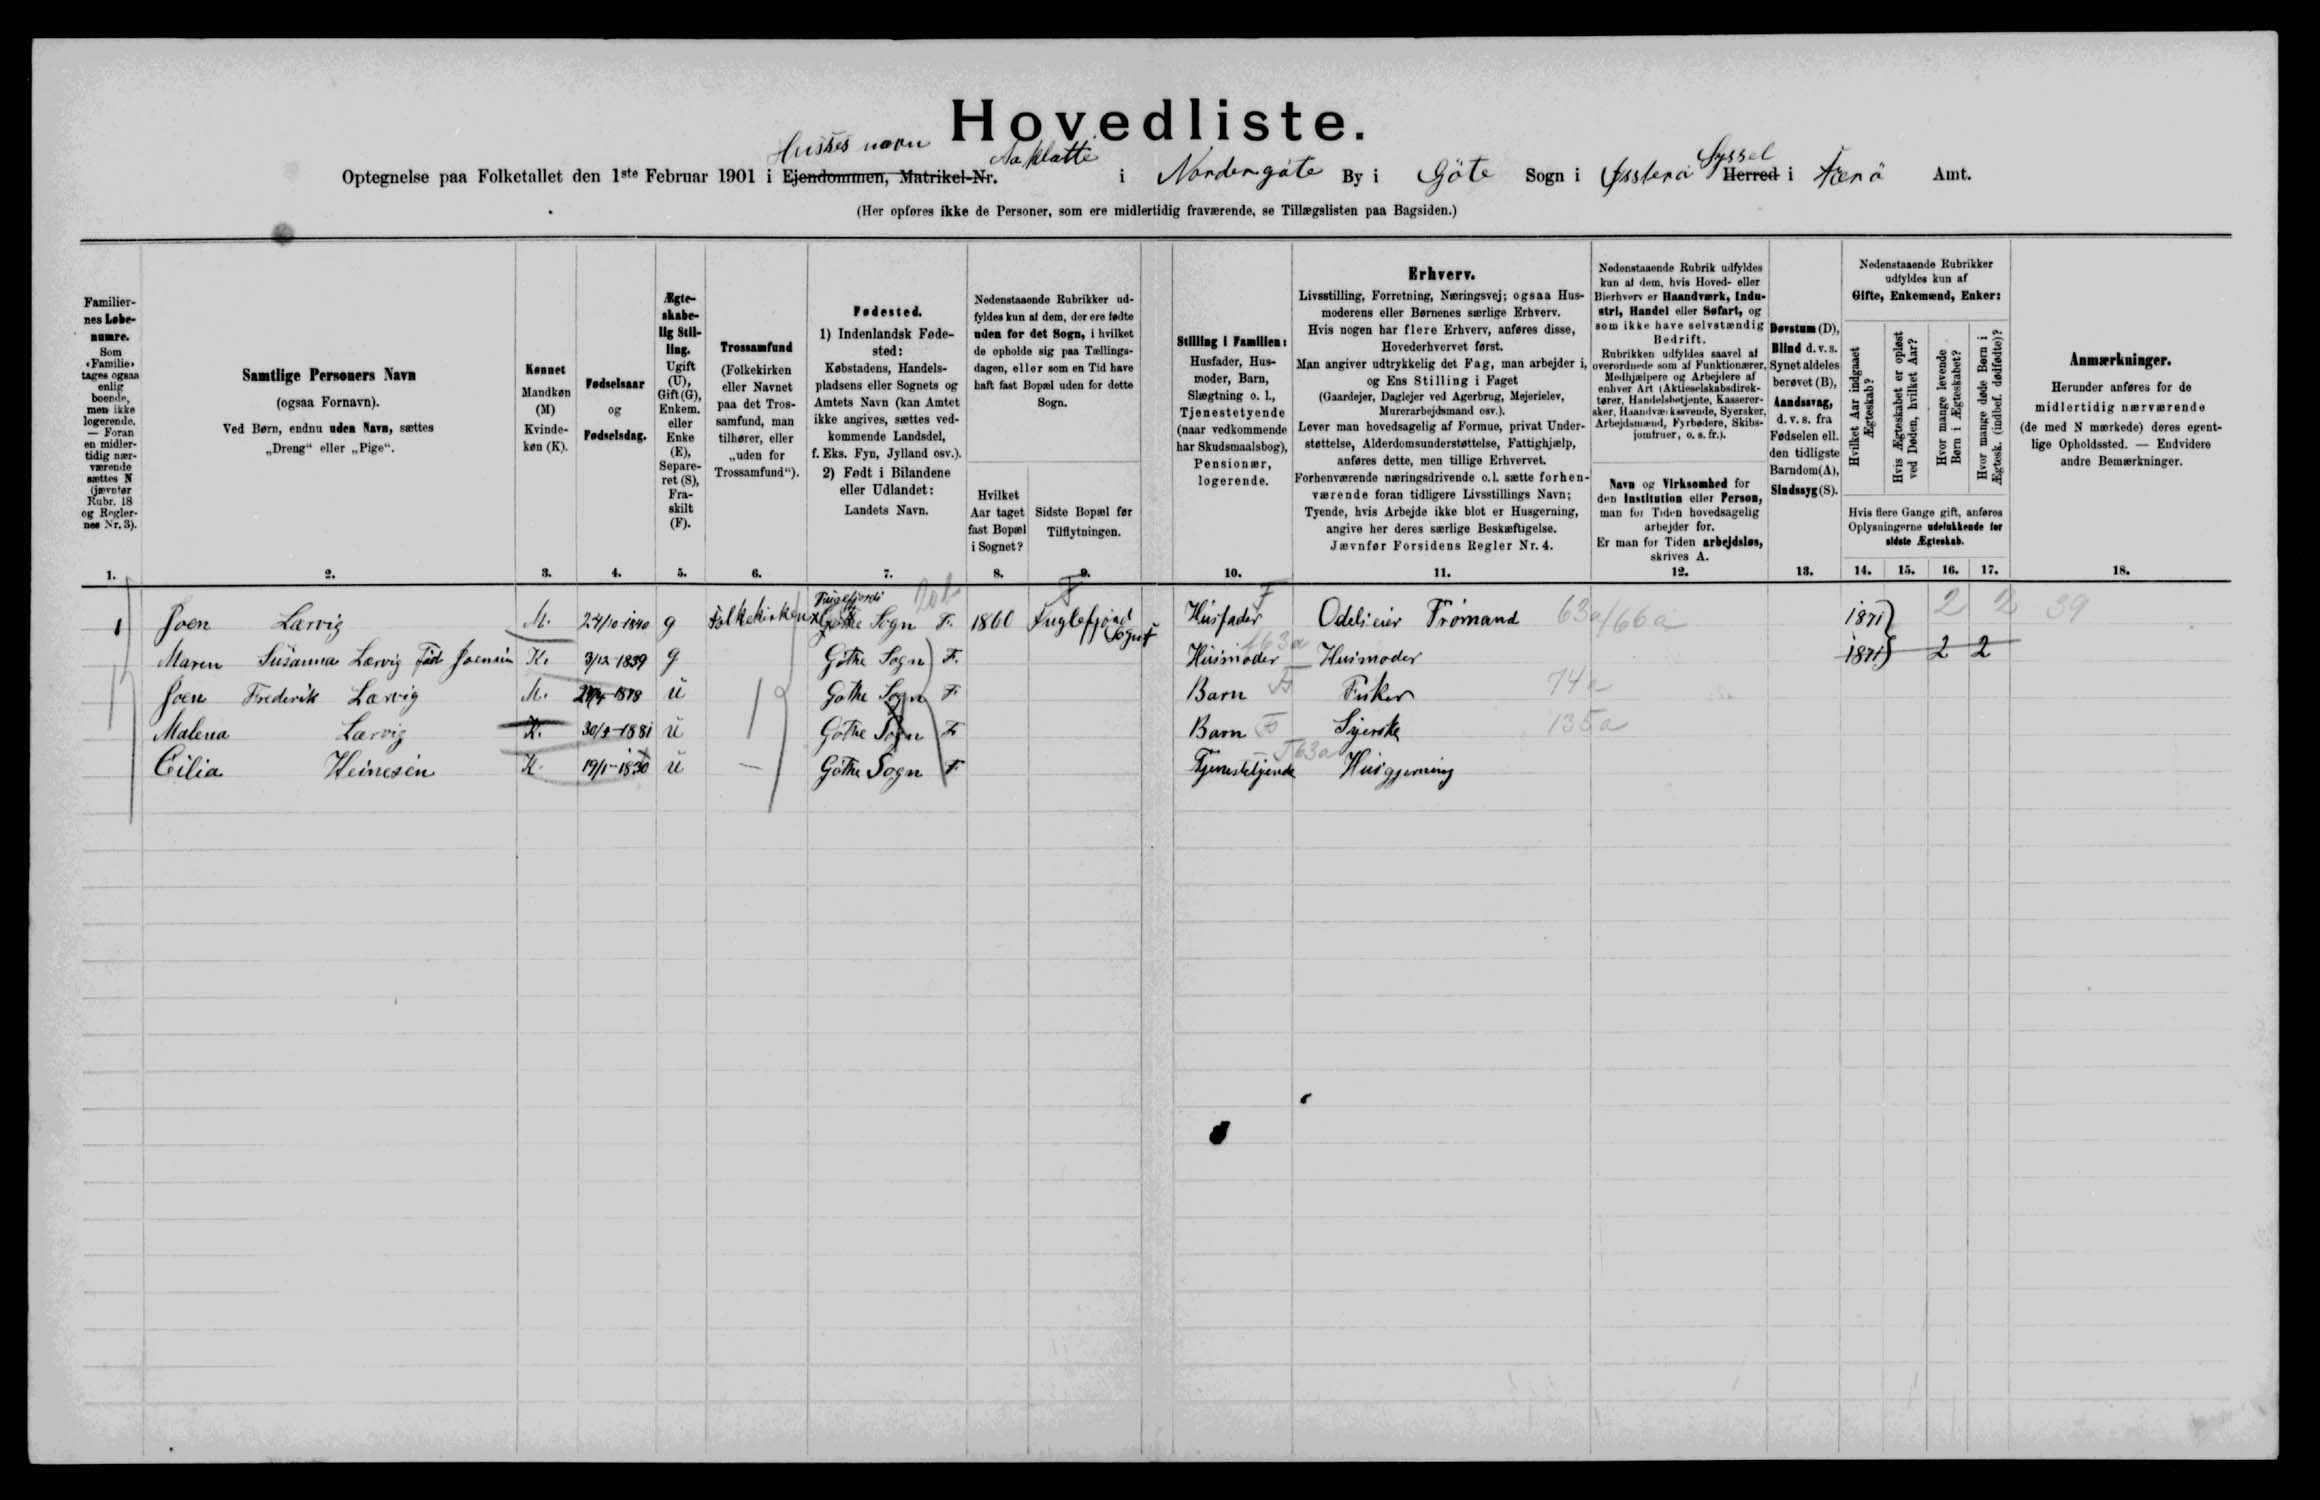 Hovedliste.
Husets navn Aaklatte Syssel
Optegnelse paa Folketallet den 1ste Februar 1901 i Ejendommen, Matrikel-Nr. i Nordergøte By i Göte Sogn i Østerø Herred i Færö Amt.
(Her opføres ikke de Personer, som ere midlertidig fraværende, se Tillægslisten paa Bagsiden.)
Familiernes Løbenumre.
Som «Familie» tages ogsaa enlig boende, men ikke logerende. — Foran en midlertidig nærværende sættes N (jævnfør Rubr. 18 og Reglernes Nr. 3).
1.
Samtlige Personers Navn
(ogsaa Fornavn).
Ved Børn, endnu uden Navn, sættes
„Dreng“ eller „Pige“.
2.
Kønnet
Mandkøn (M) Kvindekøn (K).
3.
Fødselsaar
og
Fødselsdag.
4.
Ægteskabelig Stilling.
Ugift (U), Gift (G), Enkem. eller Enke (E), Separeret (S), Fraskilt (F).
5.
Trossamfund
(Folkekirken eller Navnet paa det Trossamfund, man tilhører, eller „uden for Trossamfund“).
6.
Fødested.
1) Indenlandsk Fødested:
Købstadens, Handelspladsens eller Sognets og Amtets Navn (kan Amtet ikke angives, sættes vedkommende Landsdel, f. Eks. Fyn, Jylland osv.).
2) Født i Bilandene eller Udlandet:
Landets Navn.
7.
Nedenstaaende Rubrikker udfyldes kun af dem, der ere fødte uden for det Sogn, i hvilket de opholde sig paa Tællingsdagen, eller som en Tid have haft fast Bopæl uden for dette Sogn.
Hvilket Aar taget fast Bopæl i Sognet?
8.
Sidste Bopæl før Tilflytningen.
9.
Stilling i Familien:
Husfader, Husmoder, Barn, Slægtning o. l., Tjenestetyende (naar vedkommende har Skudsmaalsbog), Pensionær, logerende.
10.
Erhverv.
Livsstilling, Forretning, Næringsvej; ogsaa Husmoderens eller Børnenes særlige Erhverv.
Hvis nogen har flere Erhverv, anføres disse, Hovederhvervet først.
Man angiver udtrykkelig det Fag, man arbejder i, og Ens Stilling i Faget
(Gaardejer, Daglejer ved Agerbrug, Mejerielev, Murerarbejdsmand osv.).
Lever man hovedsagelig af Formue, privat Understøttelse, Alderdomsunderstøttelse, Fattighjælp, anføres dette, men tillige Erhvervet.
Forhenværende næringsdrivende o. l. sætte forhenværende foran tidligere Livsstillings Navn;
Tyende, hvis Arbejde ikke blot er Husgerning, angive her deres særlige Beskæftigelse.
Jævnfør Forsidens Regler Nr. 4.
11.
Nedenstaaende Rubrik udfyldes kun af dem, hvis Hoved- eller Bierhverv er Haandværk, Industri, Handel eller Søfart, og som ikke have selvstændig Bedrift.
Rubrikken udfyldes saavel af overordnede som af Funktionærer, Medhjælpere og Arbejdere af enhver Art (Aktieselskabsdirektører, Handelsbetjente, Kasserersker, Haandværkssvende, Syersker, Arbejdsmænd, Fyrbødere, Skibsjomfruer, o. s. fr.).
Navn og Virksomhed for den Institution eller Person, man for Tiden hovedsagelig arbejder for.
Er man for Tiden arbejdsløs, skrives A.
12.
Døvstum (D), Blind d. v. s. Synet aldeles berøvet (B), Aandssvag, d. v. s. fra Fødselen ell. den tidligste Barndom (A), Sindssyg (S).
13.
Nedenstaaende Rubrikker udfyldes kun af
Gifte, Enkemænd, Enker:
Hvilket Aar indgaaet Ægteskab?
Hvis Ægteskabet er opløst ved Døden, hvilket Aar?
Hvor mange levende Børn i Ægteskabet?
Hvor mange døde Børn i Ægtesk. (indbef. dødfødte)?
Hvis flere Gange gift, anføres Oplysningerne udelukkende for sidste Ægteskab.
14. 15. 16. 17.
Anmærkninger.
Herunder anføres for de midlertidig nærværende (de med N mærkede) deres egentlige Opholdssted. — Endvidere andre Bemærkninger.
18.
1 Joen Lærvig M. 24/10 1840 g Folkekirken Fuglefjords Gøthe Sogn F. 1860 Fuglefjord Sogn F Husfader F Odelseier Trömand 63a/66a 1871 2 2 39
Maren Susanna Lærvig föd Joensen K. 3/12 1839 g Gøthe Sogn F. Husmoder 63a Husmoder 1871 2 2
Joen Frederik Lærvig M. 1878 u Gøthe Sogn F Barn F Fisker 74a
Malena Lærvig K. 1881 u Gøthe Sogn F Barn F Syerske 135a
Cilia Heinesen K. 19/1-1830 u — Gøthe Sogn F Tjenestetyende T63a Husgjerning